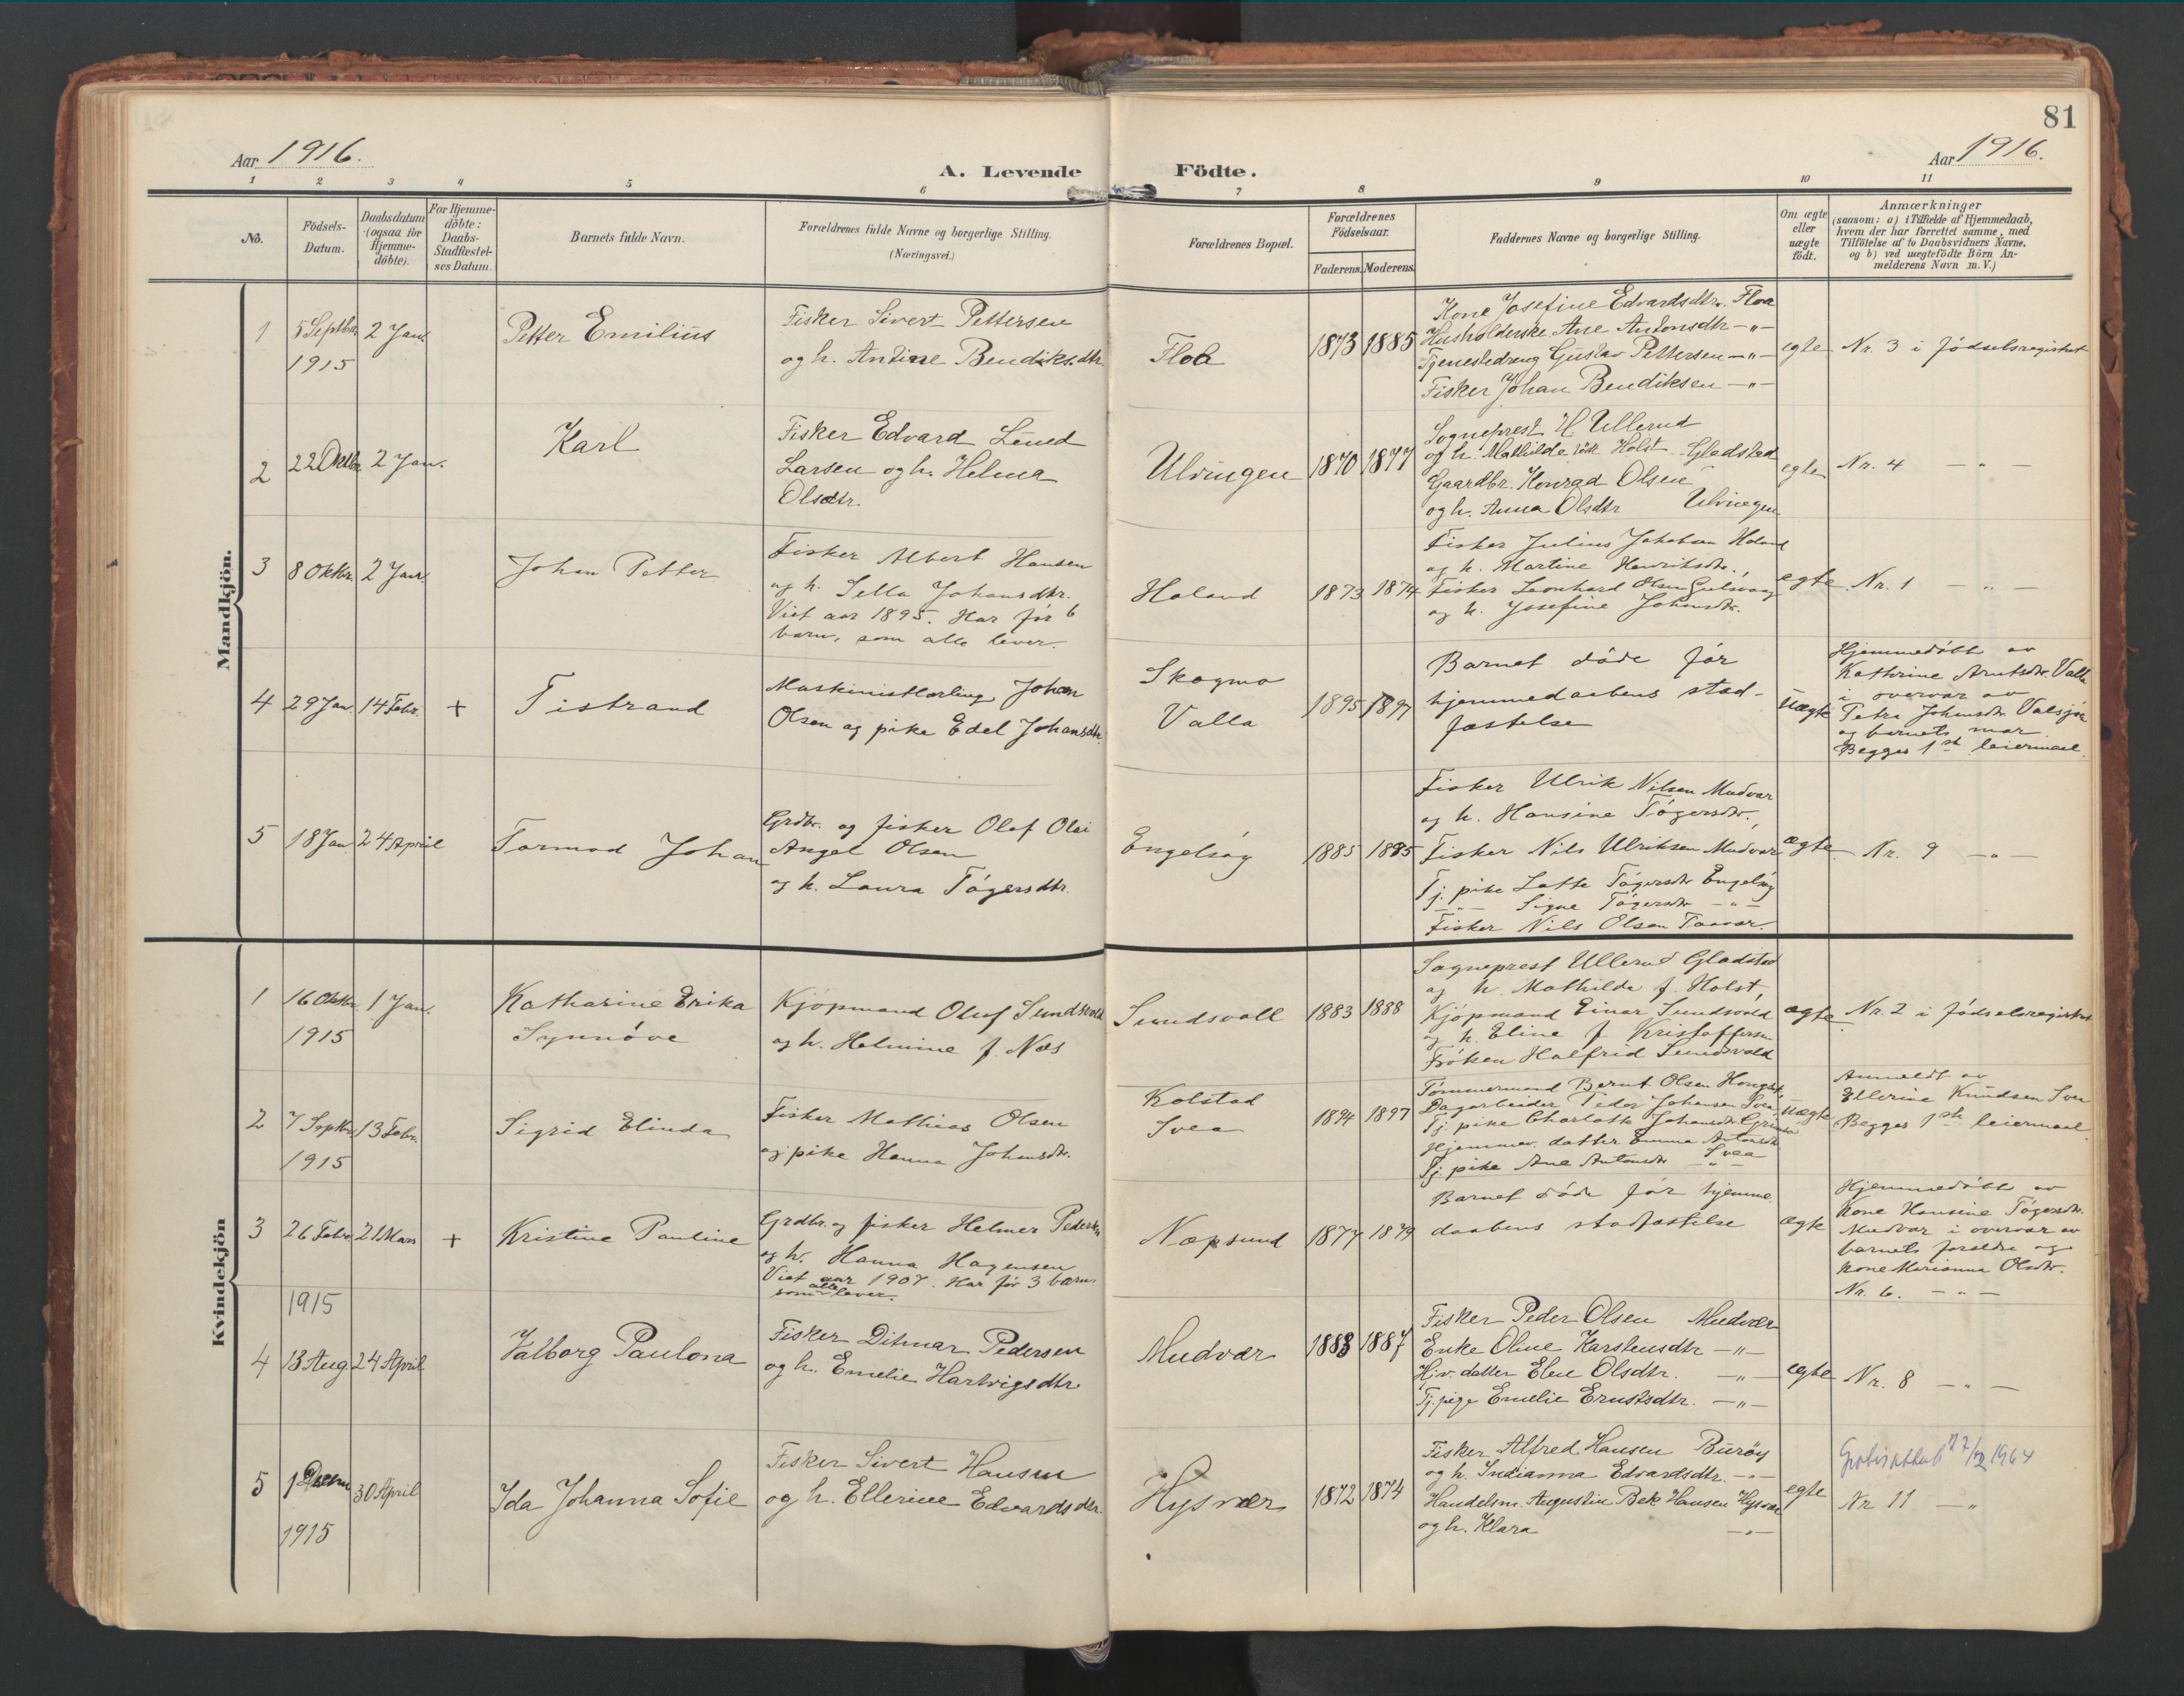 81
Aar 1916.
A. Levende Födte.
Aar 1916.
1 2 3 4 5 6 7 8 9 10 11
No.
Födsels-
Datum.
Daabsdatum
(ogsaa for
Hjemme-
döbte).
For Hjemme-
döbte:
Daabs-
Stadfæstel-
ses Datum.
Barnets fulde Navn.
Forældrenes fulde Navne og borgerlige Stilling.
(Næringsvei.)
Forældrenes Bopæl.
Forældrenes
Födselsaar.
Faderens. Moderens.
Faddernes Navne og borgerlige Stilling.
Om ægte
eller
uægte
födt.
Anmærkninger
(saasom: a) i Tilfælde af Hjemmedaab,
hvem der har forrettet samme, med
Tilföielse af to Daabsvidners Navne.
og b) ved uægtefödte Börn An-
melderens Navn m. V.)
Mandkjön.
1
5 Septbr.
1915
2 Jan.
Petter Emilius
Fisker Sivert Pettersen
og h. Antine Bendiksdtr.
Floa
1873 1885
Kone Josefine Edvardsdtr. Floa
Husholderske Ane Antonsdtr -"-
Tjenestedreng Gustav Pettersen -"-
Fisker Johan Bendiksen -"-
egte
Nr. 3 i fødselsregistret
2
22 Oktbr.
2 Jan.
Karl
Fisker Edvard Lened
Larsen og h. Helma
Olsdtr.
Ulvingen
1870 1877
Sogneprest H. Ullerud
og h. Mathilde født Holst Gladstad
Gaardbr. Konrad Olsen
og h. Anna Olsdtr Ulvingen
egte
Nr. 4 - " -
3
8 Oktbr.
2 Jan.
Johan Petter
Fisker Albert Hansen
og h. Sella Johansdtr.
Viet aar 1895. Har før 6
barn, som alle lever.
Holand
1873 1874
Fisker Julius Jakobsen Holand
og h. Martine Henriksdtr.,
Fisker Leonhard Olsen Gulsvaag
og h. Josefine Johansdtr.
egte
Nr. 1 - " -
4
29 Jan.
14 Febr.
+
Tistrand
Maskinistlærling Johan
Olsen og pike Edel Johansdtr.
Skogmo
Valla
1895 1897
Barnet døde før
hjemmedaabens stad-
fæstelse
uægte
Hjemmedøbt av
Kathrine Arntsdtr. Valla
i overvær av
Petra Johansdtr. Valsjøen
og barnets mor
Begges 1st leiermaal.
5
18 Jan.
24 April
Tormod Johan
Grdbr. og fisker Olaf Olai
Angel Olsen
og h. Laura Tøgersdtr.
Engelsøy
1885 1885
Fisker Ulrik Nilsen Mudvær
og h. Hansine Tøgersdtr.,
Fisker Nils Ulriksen Mudvær
Tj. pike Lotte Tøgersdtr Engelsøy
Tj. -"- Signe Tøgersdtr - " -
Fisker Nils Olsen Taavær.
ægte
Nr. 9 -"-
Kvindekjön
1
16 Oktbr.
1915
1 Jan.
Katharine Erika
Synnøve
Kjøpmand Oluf Sundsvold
og h. Helmine f. Næs
Sundsvoll
1883 1888
Sogneprest Ullerud Gladstad
og h. Mathilde f. Holst,
Kjøpmand Einar Sundsvold
og h. Eline f. Kristoffersen
Frøken Halfrid Sundsvold
ægte
Nr. 2 i fødselsregistret
2
7 Septbr.
1915
13 Febr.
Sigrid Elinda
Fisker Mathias Olsen
og pike Hanna Johansdtr.
Kolstad
Svea
1894 1897
Tømmermand Bernt Olsen
Dagarbeider Peder Johansen Svea,
Tj. pike Charlotte Johansdtr.
Hjemmev. datter Emma Antonsdtr.
Tj. pike Ane Antonsdtr Svea
uægte
Anmeldt av
Ellerine Knudsen Svea
Begges 1st leiermaal.
3
26 Febr.
21 Mars
+
Kristine Pauline
Grdbr. og fisker Helmer Pedersen
og h. Hanna Hagensen
Viet aar 1907. Har før 3 barn
som alle lever.
Næpsund
1877 1879
Barnet døde før hjemme
daabens stadfæstelse
ægte
Hjemmedøbt av
Kone Hansine Tøgersdtr.
Mudvær i overvær av
barnets forældre og
kone Marianna Olsdtr.
Nr. 6. - " -
4
1915
13 Aug.
24 April
Valborg Paulona
Fisker Ditmar Pedersen
og h. Emelie Hartvigsdtr.
Mudvær
1883 1887
Fisker Peder Olsen Mudvær
Enke Oline Karstensdtr -"-
Hjv. datter Elen Olsdtr. -"-
Tj. pige Emelie Ernstsdtr. -"-
egte
Nr. 8 - " -
5
1915
30 April
Ida Johanna Sofie
Fisker Sivert Hansen
og h. Ellerine Edvardsdtr.
Hysvær
1872 1874
Fisker Alfred Hansen Burøy
og h. Indianna Edvardsdtr. -"-
Handelsm. Augustin Bek Hansen Hysvær
og h. Klara -"-
egte
1964
Nr 11 - "